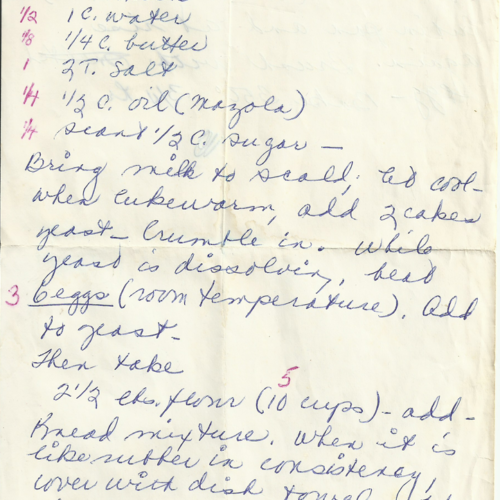 1/2 1 C. water
1/8 1/4 C. butter
1 2T. Salt
1/4 1/2 C. oil (Mazola)
1/4 scant 1/2 C. sugar —
Bring milk to scald; let cool-
when lukewarm, add 2 cakes
yeast - Crumble in. While
yeast is dissolving, beat
3 6 eggs (room temperature). Add
to yeast -
Then take
5
2 1/2 lbs. flour (10 cups) - add -
Knead mixture. When it is
like rubber in consistency,
cover with dish towel